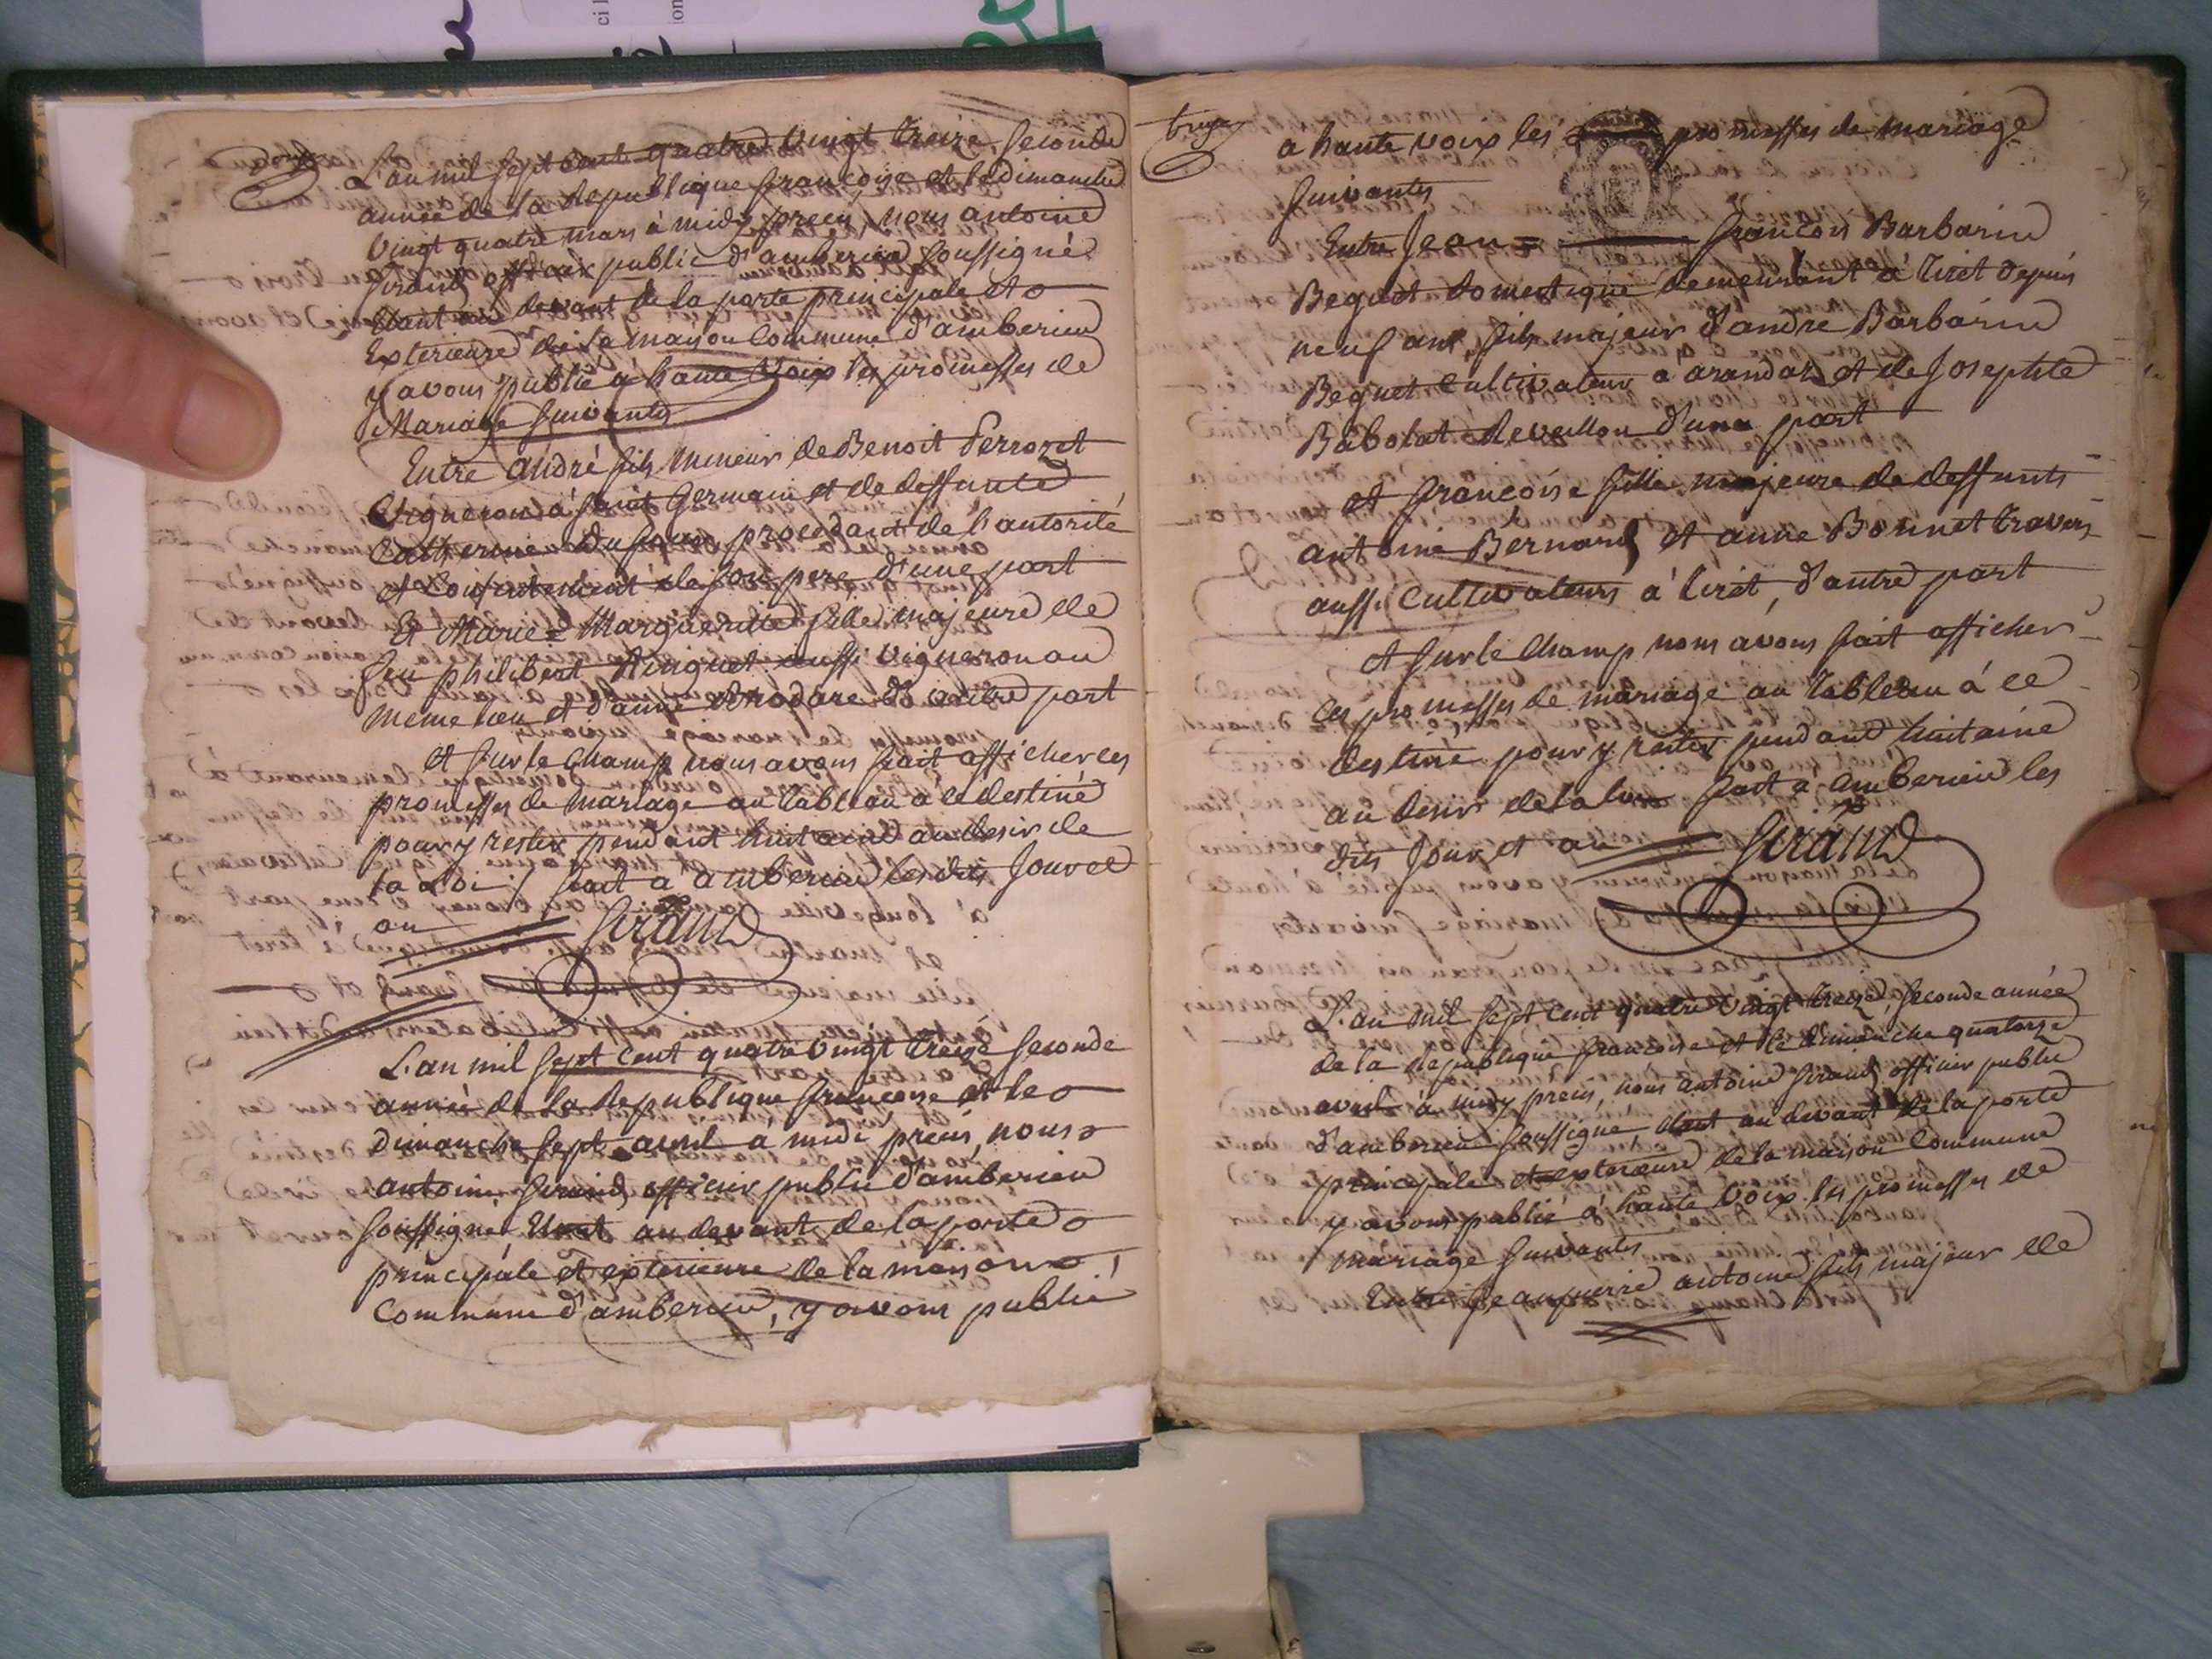 douze
L'an mil sept cent quatre vingt treize seconde
année de la republique françoise et le dimanche
vingt quatre mars à midy precis, nous antoine
Giraud officier public d'amberieu soussigné
étant au devant de la porte principale et
exterieure de la maison commune d'amberieu
y avons publié à haute voix les promesses de
Mariage suivantes
Entre andré fils mineur de Benoit Perrozet
Vigneron à saint Germain et de deffunte
Catherine procedant de l'autorité
et consentement de son pere d'une part
Et Marie = Marguerite fille majeure de
feu philibert aussi vigneron au
meme lieu et d'anne d'autre part
et sur le champ nous avons fait afficher les
promesses de mariage au tableau a ce destiné
pour y rester pendant huitaine au desir de
la Loi / fait a amberieu lesdits Jour et
an Giraud
L'an mil sept cent quatre vingt treize seconde
année de la republique françoise et le
dimanche sept avril a midi precis, nous
antoine Giraud officier public d'amberieu
soussigné étant au devant de la porte
principale et exterieure de la maison
commune d'amberieu, y avons publié
treize
a haute voix les promesses de mariage
suivantes
Entre Jean = françois Barbarin
Beguet domestique demeurant a tiret depuis
neuf ans, fils majeur d'andre Barbarin
Beguet cultivateur a arandas et de Josephte
Babolat Reveillon d'une part
et françoise fille majeure de deffunts
antoine Bernard et anne Bonnet travers
aussi cultivateurs à tiret, d'autre part
et sur le champ nous avons fait afficher
les promesses de mariage au tableau à ce
destiné pour y rester pendant huitaine
au desir de la loi fait a amberieu les
dits Jour et an Giraud
L'an mil sept cent quatre vingt treize, seconde année
de la republique françoise et le dimanche quatorze
avril à midy precis, nous antoine Giraud officier public
d'amberieu soussigné, étant au devant de la porte
principale et exterieure de la maison commune
y avons publié à haute voix les promesses de
mariage suivantes
Entre Jeanpierre antoine fils majeur de